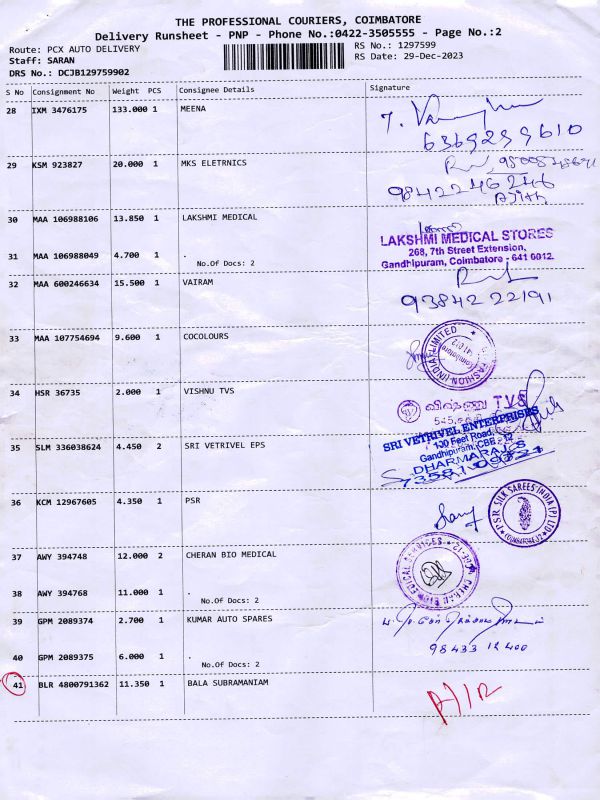 THE PROFESSIONAL COURIERS, COIMBATORE
Delivery Runsheet - PNP - Phone No.:0422-3505555 - Page No.:2
Route: PCX AUTO DELIVERY
RS No.: 1297599
Staff: SARAN
RS Date: 29-Dec-2023
DRS No.: DCJB129759902
S No Consignment No Weight PCS Consignee Details Signature
28 IXM 3476175 133.000 1 MEENA
6369299610
29 KSM 923827 20.000 1 MKS ELETRNICS
9842246246
AJITH
30 MAA 106988106 13.850 1 LAKSHMI MEDICAL
LAKSHMI MEDICAL STORES
268, 7th Street Extension,
Gandhipuram, Coimbatore - 641 0012.
31 MAA 106988049 4.700 1 .
No.Of Docs: 2
32 MAA 600246634 15.500 1 VAIRAM
93842 22191
33 MAA 107754694 9.600 1 COCOLOURS
FASHION (INDIA) LIMITED
Coimbatore
641 012
34 HSR 36735 2.000 1 VISHNU TVS
விஷ்ணு TVS
35 SLM 336038624 4.450 2 SRI VETRIVEL EPS
SRI VETRIVEL ENTERPRISES
100 Feet Road,
Gandhipuram, CBE - 12
DHARMARAJ
36 KCM 12967605 4.350 1 PSR
PSR SILK SAREES INDIA (P) LTD
COIMBATORE-12
37 AWY 394748 12.000 2 CHERAN BIO MEDICAL
38 AWY 394768 11.000 1 .
No.Of Docs: 2
39 GPM 2089374 2.700 1 KUMAR AUTO SPARES
98433 12400
40 GPM 2089375 6.000 1 .
No.Of Docs: 2
41 BLR 4800791362 11.350 1 BALA SUBRAMANIAM